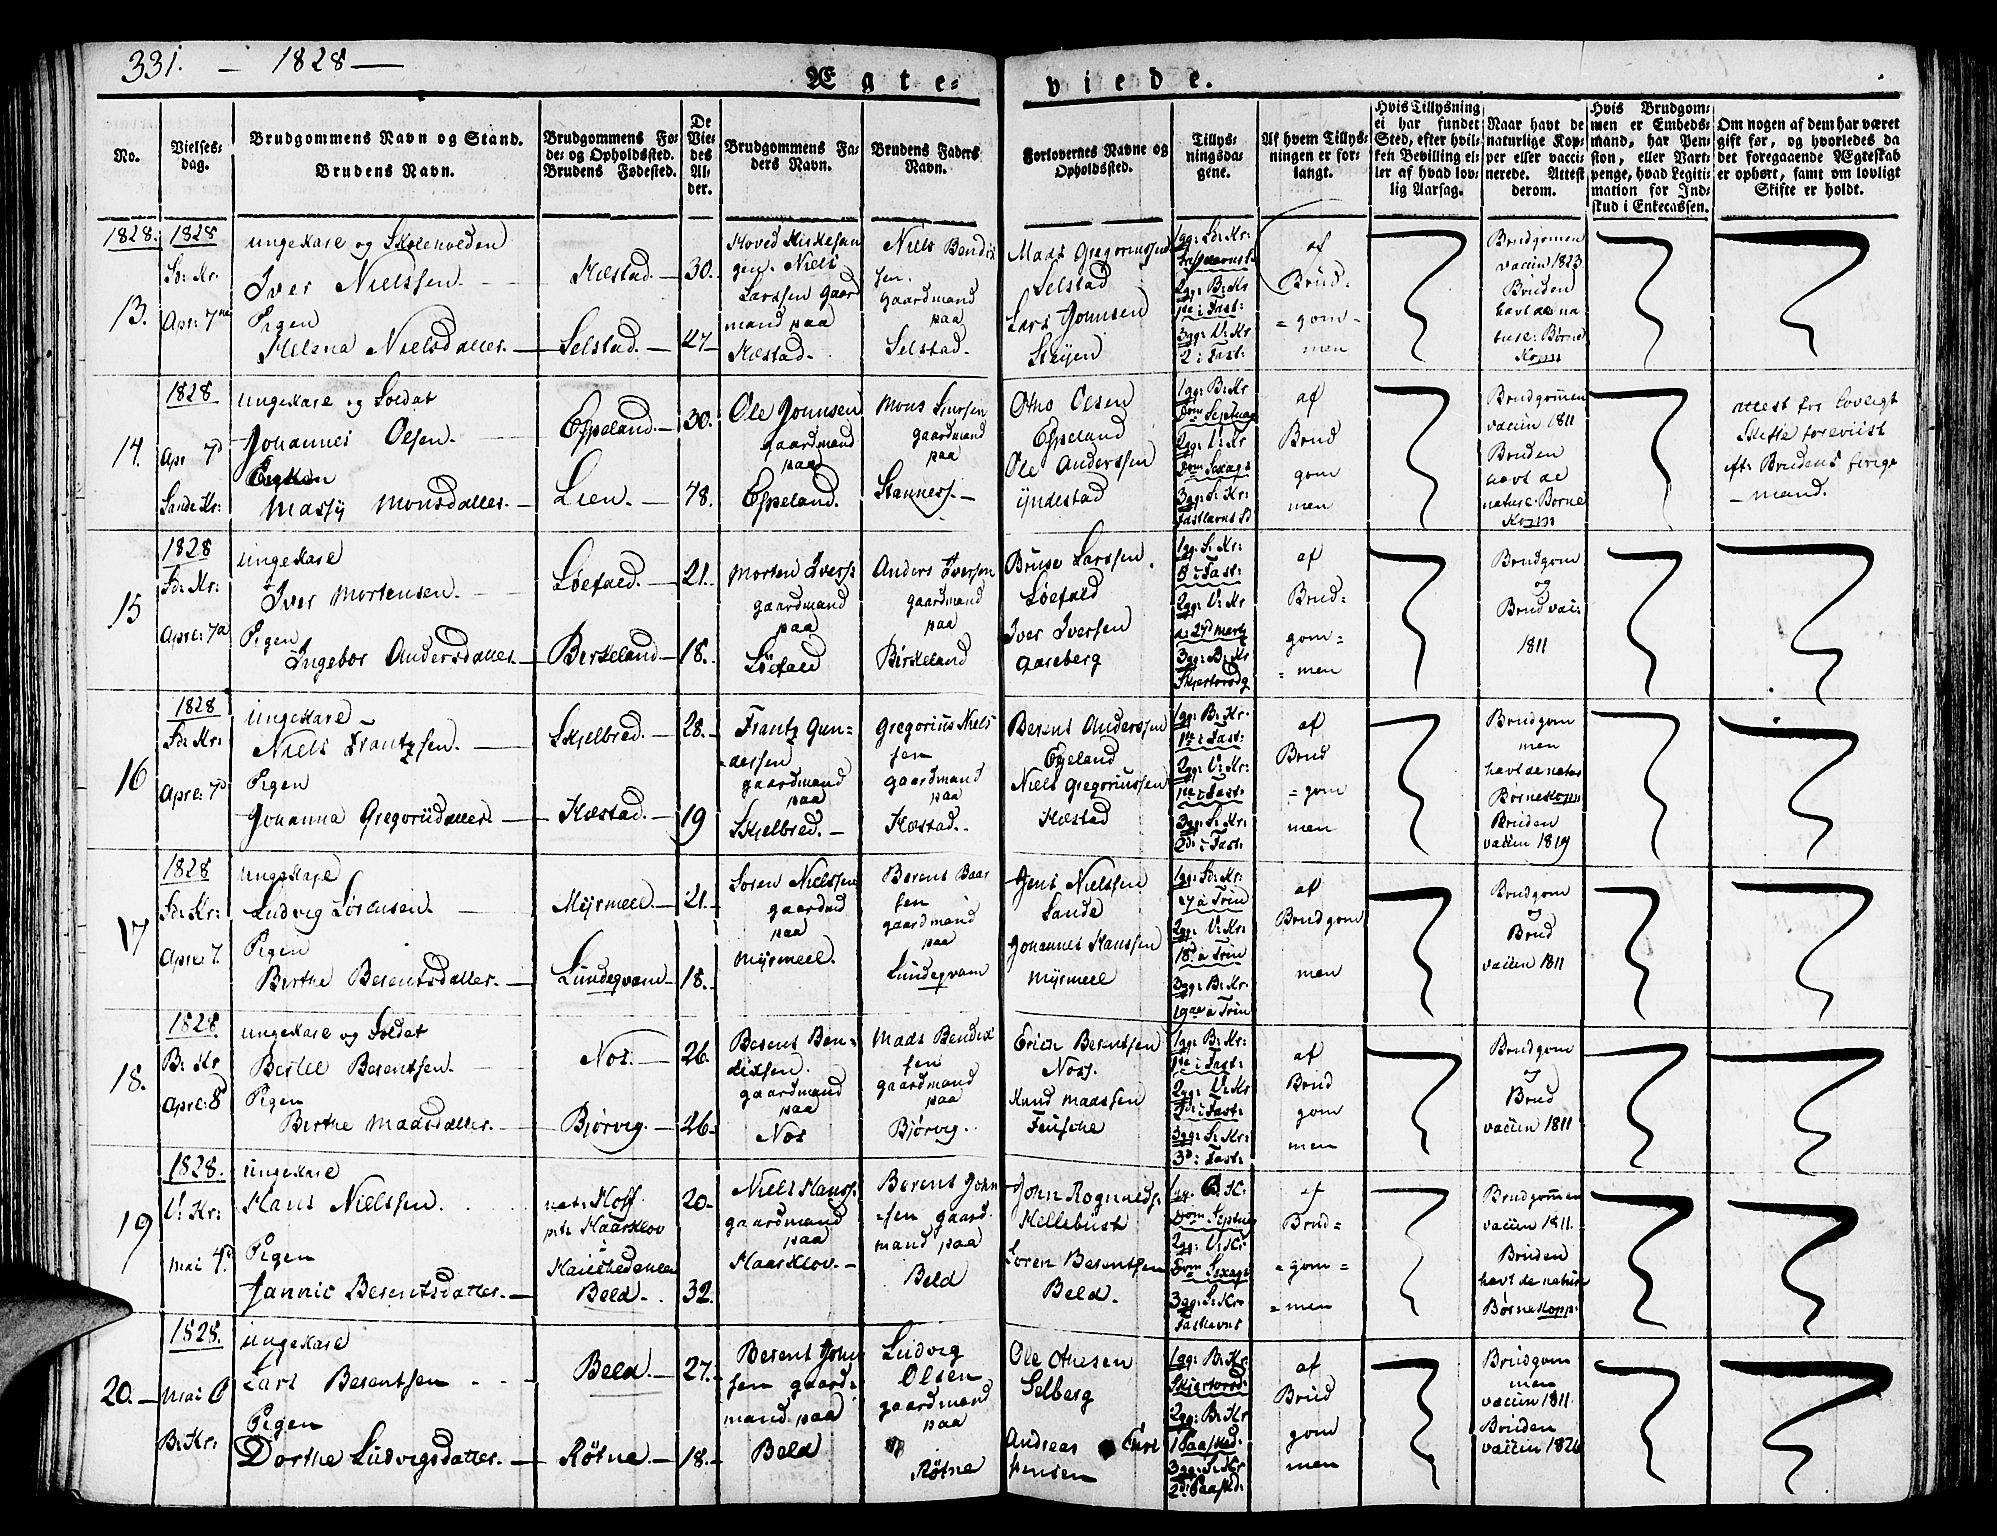 331. — 1828 —
Ægte-
viede.
No.
Vielses-
dag.
Brudgommens Navn og Stand.
Brudens Navn.
Brudgommens Fø-
de- og Opholdssted.
Brudens Fødested.
De
Vie-
des
Al-
der.
Brudgommens Fa-
ders Navn.
Brudens Faders
Navn.
Forlovernes Navne og
Opholdssted.
Tillys-
ningsda-
gene.
Af hvem Tillys-
ningen er for-
langt.
Hvis Tillysning
ei har fundet
Sted, efter hvil-
ken Bevilling el-
ler af hvad lov-
lig Aarsag.
Naar havt de
naturlige Kop-
per eller vacci-
nerede. Attest
derom.
Hvis Brudgom-
men er Embeds-
mand, har Pen-
sion, eller Vart-
penge, hvad Legiti-
mation for Ind-
skud i Enkecassen.
Om nogen af dem har været
gift før, og hvorledes da
det foregaaende Ægteskab
er ophørt, samt om lovligt
Skifte er holdt.
1828.
13.
1828
Sd: Kr:
Apr: 7
ungekarl og
Iver Nielssen.
Pigen
Helena Nielsdatter.
Hæstad.
Selstad.
30.
27
Niels
Larssen Gaard
mand paa
Hæstad.
Niels Bendix
sen
gaardmand
paa
Selstad.
Maas Gregoriussen
Selstad
Lars Jonnsen
1gg: Sd: Kr:
2gg: B: Kr
1te i Fast:
3gg: V: Kr
2 i Fast:
af
Brud-
=gom=
men
Brudgomen
vaccin 1823
Bruden
havt de na
turl: Børne
Kopp:
14.
1828
Apr 7d
Sande Kr:
ungekarl og Soldat
Johannes Olsen.
Enken
Massy Monsdatter.
Espeland.
Lien.
30.
48.
Ole Jonnsen
gaardmand
paa
Espeland.
Mons
gaardmand
paa
Stanness.
Otho Olsen
Espeland
Ole Anderssen
Yndestad
1gg: B: Kr
Dom Septuag
2gg: V: Kr
Dom Sexags
3gg: S: Kr:
Fastlavns Sd
af
Brud
gom
men
Brudgomen
vaccin 1811
Bruden
havt de
naturl: Børne
Kopp:
attest for lovligt
Skifte foreviist
eft: Brudens forige
mand.
15
1828
Sd: Kr:
Apr: 7d
ungekarl
Iver Mortensen.
Pigen
Ingebor Andersdatter.
Løefald.
Birkeland
21.
18.
Morten Ivers:
gaardmand
paa
Løefald
Anders Iversen
gaardmand
paa
Birkeland
Bruse Larssen.
Løefald
Iver Iversen
Aaseberg
1gg: S: Kr:
3 i Fast:
2gg: V: Kr
d: 27d Marty
3gg: B: Kr
Skjertorsdg
af
Brud=
gom=
=men
Brudgom
og
Brud vac:
1811
16
1828
Sd: Kr:
Apr: 7d
Ungekarl
Niels Frantzsen.
Pigen
Johanna Gregoriidatter.
Skjelbred.
Hæstad.
28.
19
Frantz Gun=
dersen
gaardmand
paa
Skjelbred.
Gregorius Niels
sen
gaardmand
paa
Hæstad.
Berent Anderssen
Niels Gregoriussen
Hæstad
1gg: B: Kr:
1te i Fast:
2gg: V: Kr:
3gg: S: Kr:
2d: i Fast:
af
Brud
=gom
men
Brudgom
men
havt de natur
Børnekopp
Bruden
vaccin 1819
17
1828
Sd: Kr:
Apr: 7.
ungekarl
Ludvig Sørensen.
Pigen
Berthe Berentsdatter.
Myrmeel.
Lundeqvam
21.
18.
Sören Nielssen
gaardmd
paa
Myrmeel.
Berent Baar
sen
gaardmand
paa
Lundeqvam
Jens Nielssen
Sande
Johannes Hanssen
Myrmeel
1gg: Sd: Kr:
17 a Trin
2gg: V: Kr:
18d a Trin
3gg: B: Kr:
19de a Trin
af
Brudgom
men
Brudgom
og
Brud
vaccin 1811
18.
1828.
B: Kr
Apr: 8d
ungekarl og Soldat
Bertel Berentsen.
Pigen
Berthe Maasdatter.
Nos.
Bjørvig.
26.
26.
Berent Ben=
dixsen.
gaardmand
paa
Nos
Maas Bendix
sen
gaardmand
paa
Bjørvig.
Erich Berentsen
Noss.
Knud Maassen
1gg: B: Kr:
1te i Fast:
2gg: V: Kr
2d: i Fast:
3gg: S: Kr:
3d: Fast:
af
Brud
gom
men
Brudgom
og
Brud
vaccin 1811
19
1828.
V: Kr:
Mai 4d
ungekarl
Hans Nielssen.
Pigen
Jannic Berentsdatter.
Haarklov
Beld.
20.
32.
Niels Hanss:
gaardmand
paa
Haarklov.
Berent John
sen gaard
mand paa
Beld
John Rognveds:
Hellebust
Sören Berentsen
Beld.
1gg. B. K:
Dom Septug
2gg: V: Kr
Dom Sexags
3gg: S: Kr:
Fastlavns
af
Brud=
=gom=
=men
Brudgommen
vaccin 1811.
Bruden
havt de natur
Børnekopp:
20.
1828.
Mai
B: Kr:
ungekarl
Lars Berentsen
Pigen
Dorthe Ludvigsdatter.
Beld.
Røtne.
27.
18.
Berent John
sen gaard=
mand paa
Beld
Ludvig
Olsen
gaardmand
paa
Røtne
Ole
Selberg
Andreas
1gg: B: Kr:
Skjertorsd
2gg: B: Kr
1 Paaskd:
3gg: S: Kr:
2d: Paaskd:
af
Brud
gom
men
Brudgom
men
vaccin 1811.
Bruden